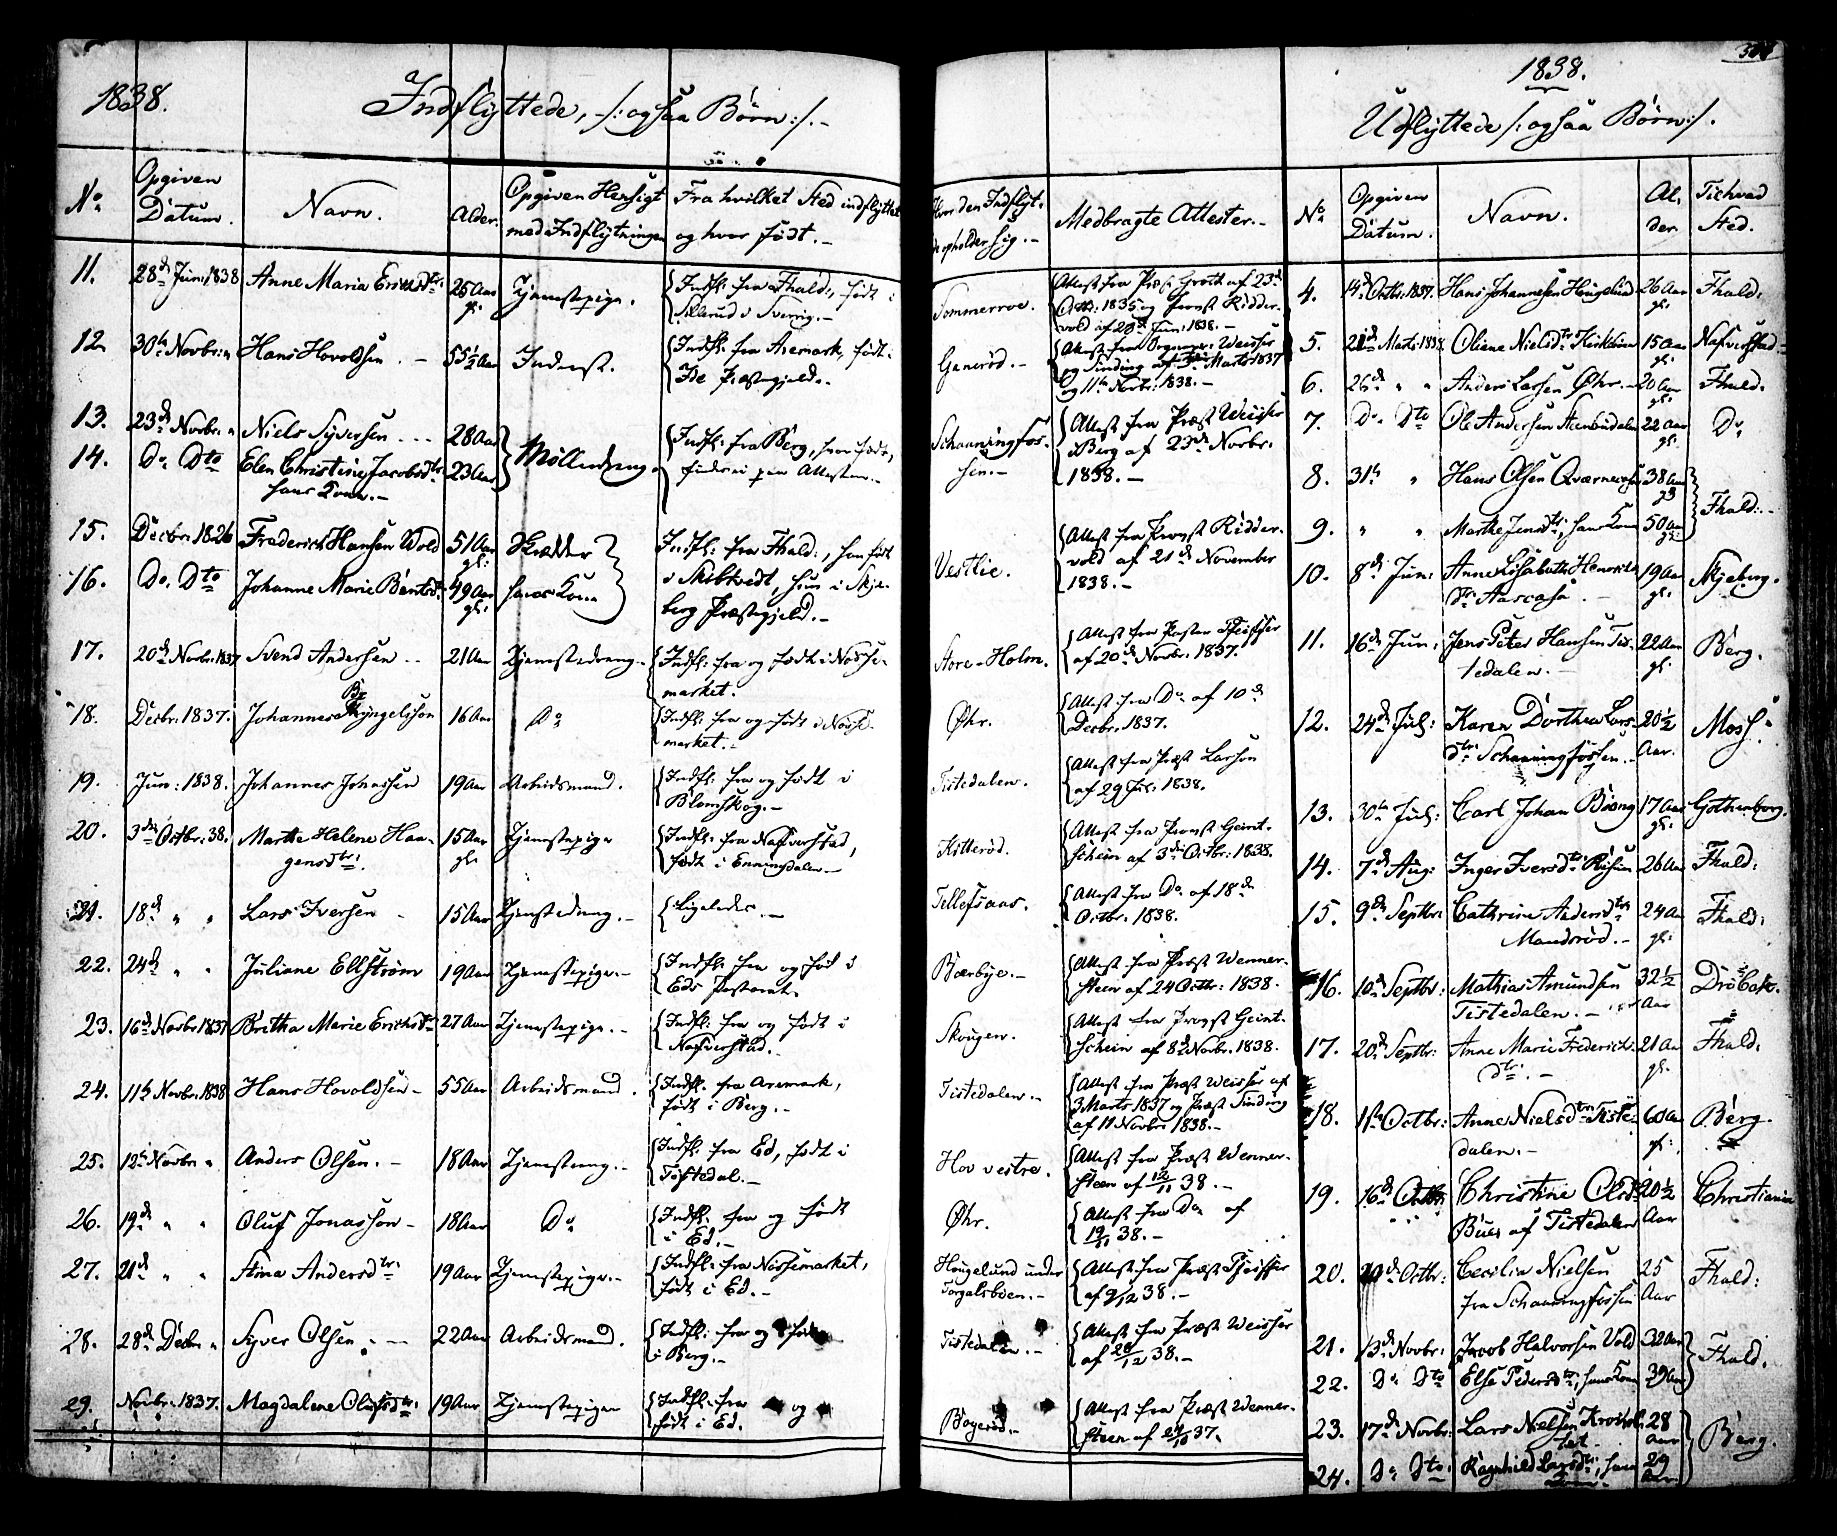 1838.
Indflyttede, /: ogsaa Børn :/. -
No
Opgiven Datum.
Navn.
Alder.
Opgiven Hensigt med Indflytningen
Fra hvilket Sted indflyttet og hvor født. -
Hvor den Indflyt- opholder sig. -
Medbragte Attester. -
11. 28de Jun: 1838 Anne Maria Ericsdtr: 25 Aar gl: Tjenestepige. Indfl: fra Fhald:, født i Sillerud i Sverrig. - Sommerroe. Attest fra Præst Groth af 23de 1835 og Provst Ridder- vold af 28de Jun: 1838. -
12 30te Novbr: " Hans Hovoldsen. - 55½ Aar Inderst. Indfl: fra Aremark, født i Ide Præstegjeld. - Ganerød. - Attest fra Weisser og Sinding af Marts 1837 og 11te Novbr: 1838. -
13. 23de Novbr: " Niels Syversen - - - 28 Aar
14. Do Dto Elen Christine Jacobsdtr: hans Kone. - 23 Aar Mølledreng Indfl: fra Berg, hvor født, findes i paa Attesten. - Schanningfos- sen. - Attest fra Præst Weisser i Berg af 23de Novbr: 1838. -
15. Decbr: 1826 Frederich Hansen Wold 51 Aar gl: Skrædder
16. Do Dto Johanne Marie Bentsdtr: 49 Aar gl: hans Kone Indfl: fra Fhald:, han født i Skibtvedt, hun i Skje- berg Præstegjeld. - Vestlie. Attest fra Provst Ridder- vold af 21de November 1838. -
17. 20de Novbr: 1837 Svend Andersen - - 21 Aar Tjenestedreng - Indfl: fra og født i Nøsse- market. Store-Holm. Attest fra Pastor Pfeiffer af 20de Novbr: 1837.
18. Decbr: 1837. Johannes Bryngelsson 16 Aar Do Indfl: fra og født i Nøsse- market. - Øhr. Attest fra Do af 10de Decbr: 1837.
19. Jun: 1838. Johannes Johnssen 19 Aar Arbeidsmand. Indfl: fra og født i Blomskog. - Tistedalen. Attest fra Præst Larson af 29 Jun: 1838.
20. 3die Octbr: 38. Marthe Helene Haa- gensdtr: 15 Aar gl: Tjenestepige Indfl: fra Nafverstad, født i Enningdalen - Kitterød. Attest fra Provst Geint- schein af 3die Octbr: 1838.
21. 18de " " Lars Iversen - 15 Aar Tjenestedreng. - Ligeledes. - Tellefsaas. Attest fra Do af 18de Octbr: 1838.
22. 24de " " Juliane Ellström 19 Aar Tjenestepige. - Indfl: fra og født i Eds Pastorat. Bærbye. - Attest fra Præst Wenner- steen af 24 Octbr: 1838.
23. 16de Novbr: 1837 Britha Marie Erichsdtr 27 Aar Tjenestepige. - Indfl: fra og født i Nafverstad. - Skougen. Attest fra Provst Geint- schein af 8de Novbr: 1838.
24. 11te Novbr: 1838 Hans Hovoldsen - 55 Aar Arbeidsmand. Indfl: fra Aremark, født i Berg. - Tistedalen. - Attest fra Præst Weisser af 3 Marts 1837 og Præst Sinding af 11 Novbr 1838. -
25. 12te Novbr: " Anders Olsen. - 18 Aar Tjenestdreng. - Indfl: fra Ed, født i Töftedal. - Hov vestre. Attest fra Præst Wenner- steen af 12/11 38. -
26. 19de " " Oluf Jonasson - 18 Aar Do Indfl: fra og født i Ed. - Øhr. Attest fra Do af 19/11 38. -
27. 21de " " Stina Andersdtr: 19 Aar Tjenestepige. - Indfl: fra Nøssemarket, født i Ed. - Høugelund under Torgalsbøen. - Attest fra Præst Pfeiffer af 9/12 38. -
28. 28de Decbr " Syver Olsen. - - 22 Aar Arbeidsmand. Indfl: fra og født i Berg. - Tistedalen. - Attest fra Præst Weisser af 28/12 38. -
29. Novbr: 1837. Magdalene Olufsdtr: 19 Aar Tjenestepige Indfl: fra og født i Ed. Bøgerød. - Attest fra Præst Wenner- steen af 37.
1838.
Udflyttede /: ogsaa Børn :/.
No
Opgiven Datum.
Navn.
Al- der.
Til hvad Sted.
4. 14de Octbr: 1837. Hans Johannesen Høugelund 26 Aar gl: Fhald:
5. 21de Marts 1838 Oliane Nielsdtr 15 Aar gl: Nafverstad -
6. 26de " " Anders Larsen Øhr. - 20 Aar gl: Fhald:
7. Do Dto Ole Andersen 22 Aar gl: Do
8. 31te " Hans Olsen 38 Aar gl
9. " " Marthe Jensdtr:, hans Kone 50 Aar gl: Fhald: -
10. 8de Jun: Anne Lisabeth Henrichs- dtr: Aarcasa. - 19 Aar gl: Skjeberg.
11. 16de Jun: Jens Peter Hansen Tis- tedalen. - 22 Aar gl: Berg.
12. 24de Jul: Karen Dorthea Lars- dtr: Schanningfossen. - 20½ Aar. Moss.
13. 30te Jul: Carl Johan 17 Aar gl: Gothenborg.
14. 7de Aug: Inger Iversdtr: 26 Aar Fhald:
15. 9de Septbr: Cathrine Andersdtr: Mandsrød. - 24 Aar gl: Fhald:
16. 10de Septbr: Mathias Amundsen Tistedalen. - 32½ Aar Drøbak.
17. 20de Septbr: Anne Marie Frederichs- dtr: - 21 Aar gl: Fhald:
18. 1ste Octbr: Anne Nielsdtr: Tiste- dalen. - 60 Aar gl: Berg.
19. 16de Octbr: Christine Olsdtr Bues af Tistedalen 20½ Aar Christiania
20. Octbr: Cecilia Nielsen fra Schanningfossen 25 Aar Fhald:
21. 13de Novbr: Jacob Halvorsen Vold 32 Aar
22. Do Dto Else Pedersdtr:, hans Kone 39 Aar Fhald.
23. 17de Novbr: Lars Nielsen 28 Aar
24. Do Dto Ragnhild Larsdtr:, hans Kone. 29 Aar Berg.